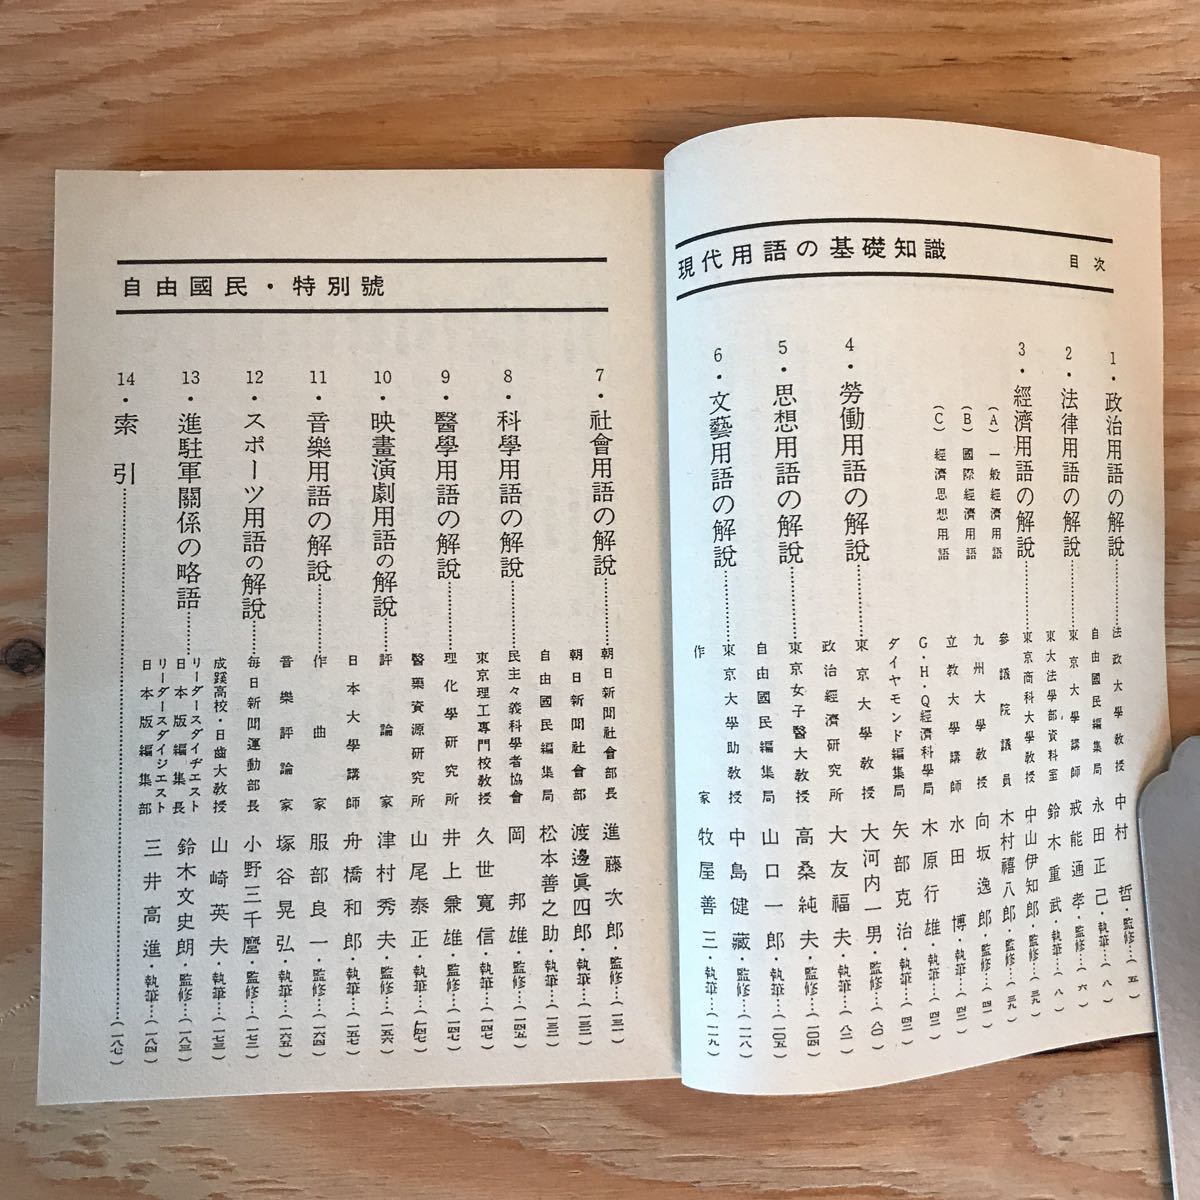 現代用語の基礎知識
目次
1・政治用語の解説
法政大學教授 中村哲・監修…(五)
自由國民編集局 永田正己・執筆…(八)
2・法律用語の解説
東京大學講師 戒能通孝・監修…(六)
東大法學部資料室 鈴木重武・執筆…(八)
3・經濟用語の解説
(A)一般經濟用語
(B)國際經濟用語
(C)經濟思想用語
東京商科大學教授 中山伊知郎・監修…(三九)
參議院議員 木村禧八郎・監修…(三九)
九州大學教授 向坂逸郎・監修…(四一)
立教大學講師 水田博・執筆…(四一)
G・H・Q經濟科學局 木原行雄・執筆…(四一)
ダイヤモンド編集局 矢部克治・執筆…(四二)
4・勞働用語の解説
東京大學教授 大河内一男・監修…(八〇)
政治經濟研究所 大友福夫・執筆…(八二)
5・思想用語の解説
東京女子醫大教授 高桑純夫・監修…(一〇四)
自由國民編集局 山口一郎・執筆…(一〇五)
6・文藝用語の解説
東京大學助教授 中島健藏・監修…(一一八)
作家 牧屋善三・執筆…(一一九)
自由國民・特別號
7・社會用語の解説
朝日新聞社會部長 進藤次郎・監修…(一三一)
朝日新聞社會部 渡邊眞四郎・執筆…(一三二)
自由國民編集局 松本善之助・執筆…(一三二)
8・科學用語の解説
民主々義科學者協會 岡邦雄・監修…(一四五)
東京理工専門校教授 久世寬信・執筆…(一四七)
9・醫學用語の解説
理化學研究所 井上兼雄・監修…(一四七)
醫藥資源研究所 山尾泰正・執筆…(一四七)
10・映畫演劇用語の解説
評論家 津村秀夫・監修…(一五六)
日本大學講師 舟橋和郎・執筆…(一五七)
11・音樂用語の解説
作曲家 服部良一・監修…(一六四)
音樂評論家 塚谷晃弘・執筆…(一六五)
12・スポーツ用語の解説
毎日新聞運動部長 小野三千麿・監修…(一七二)
成蹊高校・日齒大教授 山崎英夫・執筆…(一七三)
13・進駐軍關係の略語
リーダースダイヂェスト日本版編集長 鈴木文史朗・監修…(一八三)
リーダースダイジェスト日本版編集部 三井高進・執筆…(一八四)
14・索引…(一八七)